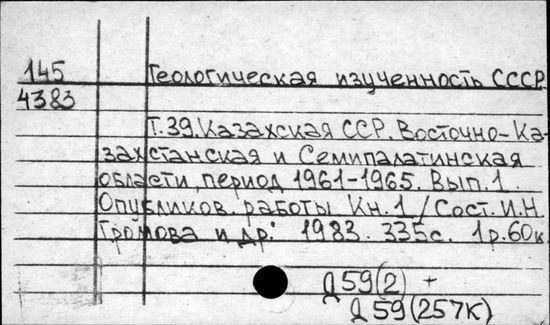 145
4383
Геологическая изученность СССР
Т.39. Казахская ССР. Восточно-Ка-
захстанская и Семипалатинская
области, период 1961-1965. Вып.1.
Опубликов. работы Кн.1/Сост. И.Н.
Громова и др. 1983. 335с. 1р.60к
Д59(2) +
Д59(257К)